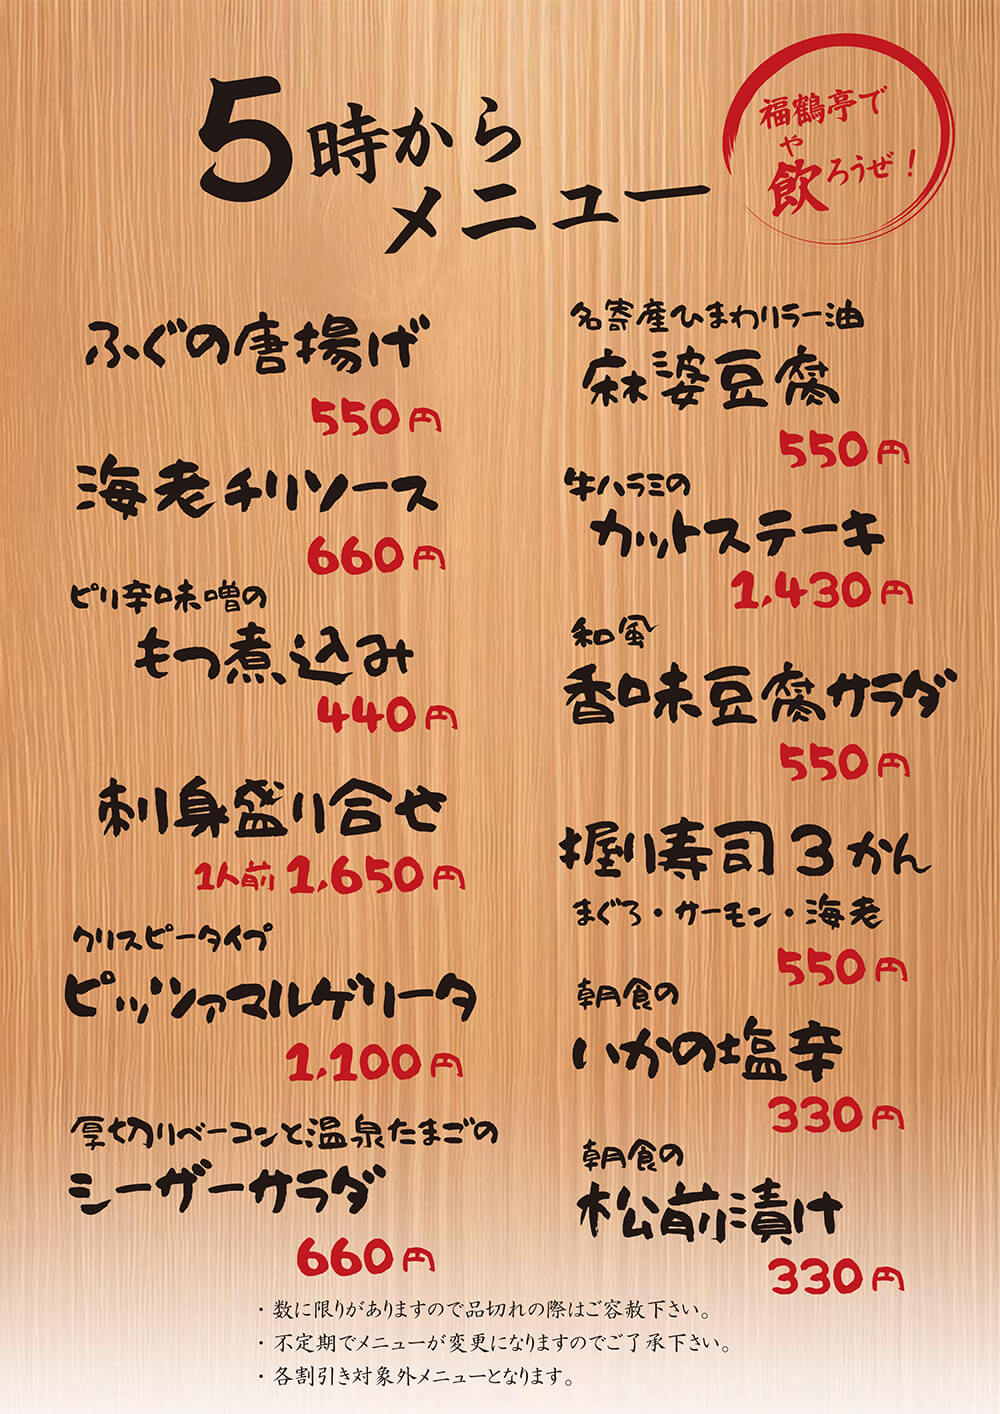 5時から
メニュー
福鶴亭で
や
飲ろうぜ！
ふぐの唐揚げ
550円
海老チリソース
660円
ピリ辛味噌の
もつ煮込み
440円
刺身盛り合せ
1人前 1,650円
クリスピータイプ
ピッツァマルゲリータ
1,100円
厚切りベーコンと温泉たまごの
シーザーサラダ
660円
名寄産ひまわりラー油
麻婆豆腐
550円
牛ハラミの
カットステーキ
1,430円
和風
香味豆腐サラダ
550円
握り寿司3かん
まぐろ・サーモン・海老
550円
朝食の
いかの塩辛
330円
朝食の
松前漬け
330円
・数に限りがありますので品切れの際はご容赦下さい。
・不定期でメニューが変更になりますのでご了承下さい。
・各割引き対象外メニューとなります。